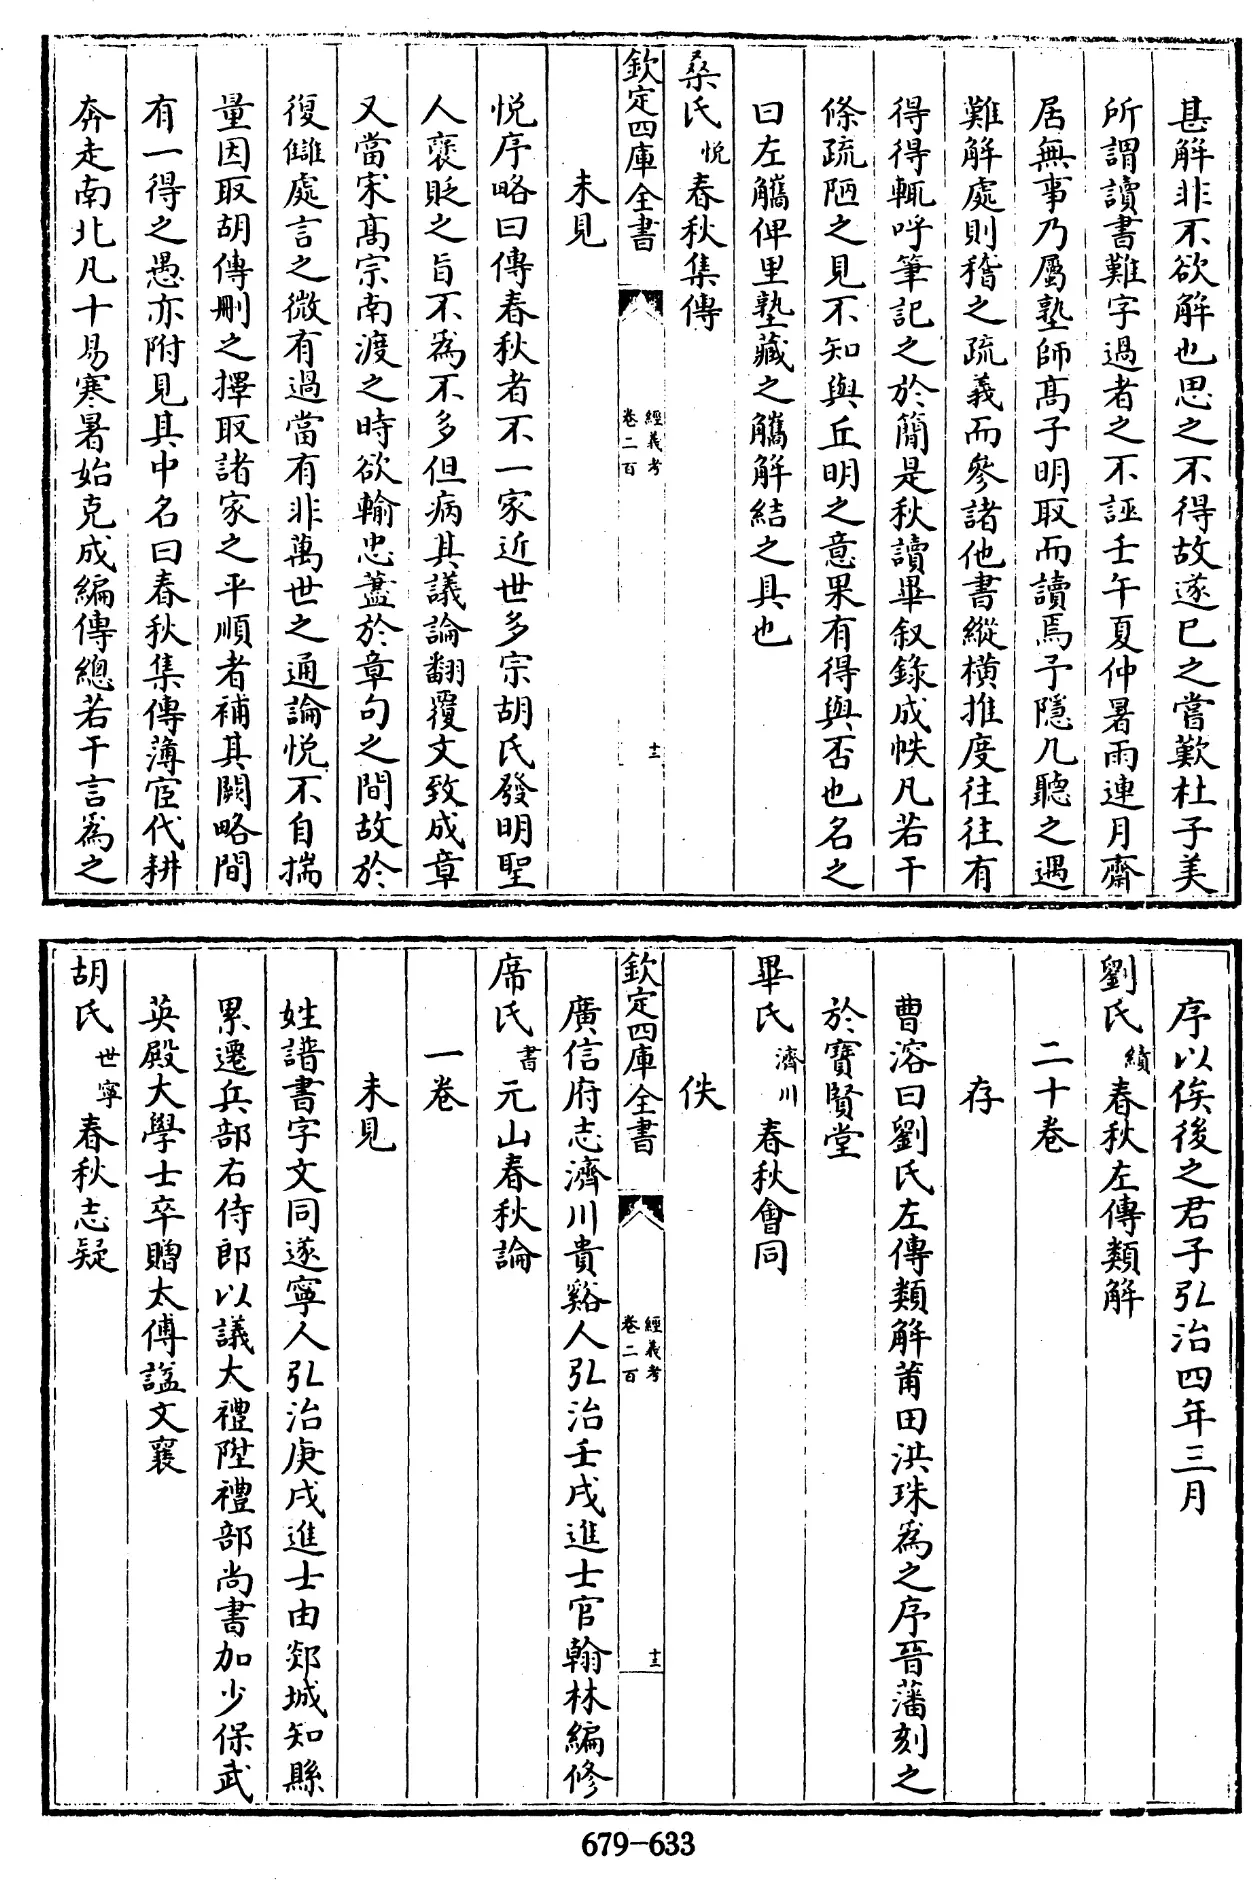 甚解非不欲解也思之不得故遂已之嘗歎杜子美
所謂讀書難字過者之不誣壬午夏仲暑雨連月齋
居無事乃屬塾師高子明取而讀焉予隱几聽之遇
難解處則稽之疏義而參諸他書縱横推度往往有
得得輒呼筆記之於簡是秋讀畢叙錄成帙凡若干
條疏陋之見不知與丘明之意果有得與否也名之
曰左觿俾里塾藏之觿解結之具也
桑氏悦春秋集傳
欽定四庫全書
經義考
卷二百
十二
未見
悦序略曰傳春秋者不一家近世多宗胡氏發明聖
人襃貶之旨不為不多但病其議論翻覆文致成章
又當宋髙宗南渡之時欲輸忠藎於章句之間故於
復讎處言之微有過當有非萬世之通論悦不自揣
量因取胡傳刪之擇取諸家之平順者補其闕略間
有一得之愚亦附見其中名曰春秋集傳薄宦代耕
奔走南北凡十易寒暑始克成編傳總若干言為之
序以俟後之君子弘治四年三月
劉氏績春秋左傳類解
二十卷
存
曹溶曰劉氏左傳類解莆田洪珠為之序晉藩刻之
於寶賢堂
畢氏濟川春秋會同
佚
欽定四庫全書
經義考
卷二百
十三
廣信府志濟川貴谿人弘治壬戌進士官翰林編修
席氏書元山春秋論
一卷
未見
姓譜書字文同遂寧人弘治庚戌進士由郯城知縣
累遷兵部右侍郎以議大禮陞禮部尚書加少保武
英殿大學士卒贈太傅諡文襄
胡氏世寧春秋志疑
679-633